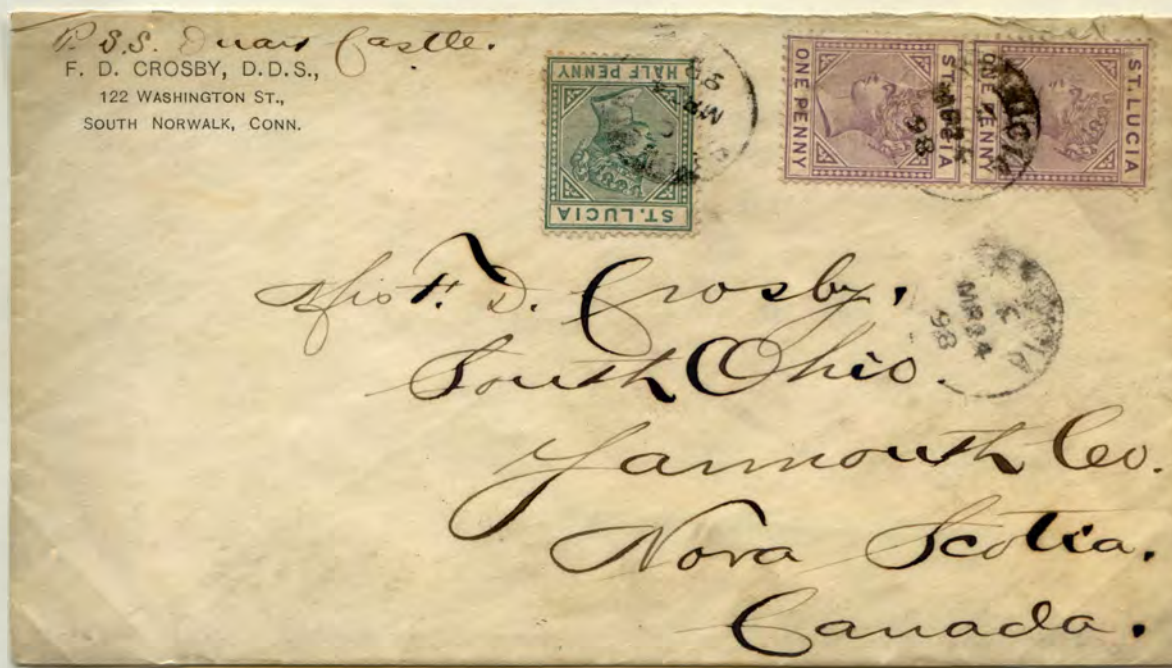 P. S.S. Duart Castle.
F. D. CROSBY, D.D.S.,
122 WASHINGTON ST.,
SOUTH NORWALK, CONN.
HALF PENNY
ST. LUCIA
ONE PENNY
ST. LUCIA
ONE PENNY
ST. LUCIA
MR 24
98
MR 24
98
F. D. Crosby,
South Ohio.
Yarmouth Co.
Nova Scotia.
Canada.